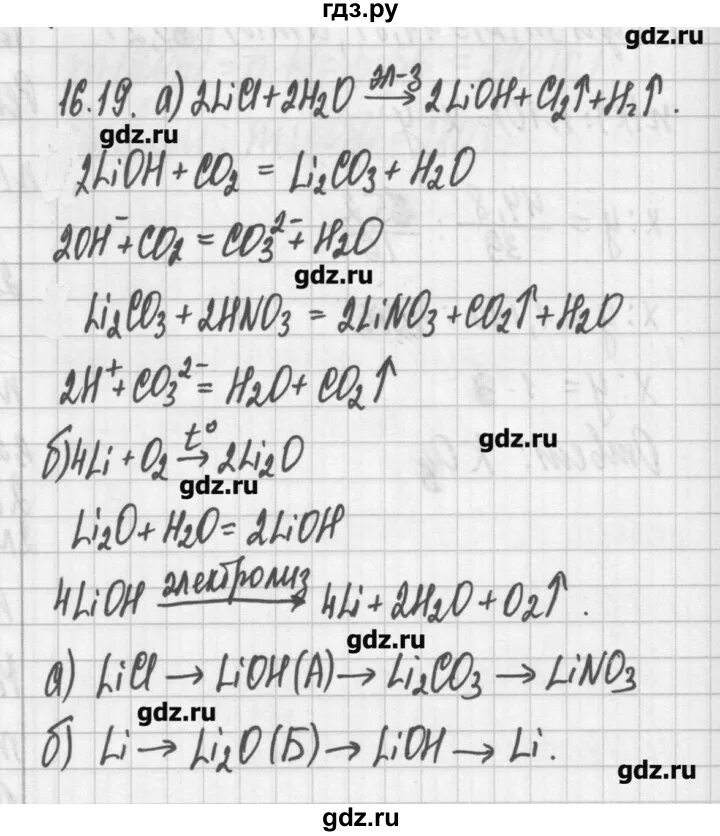 гдз.ру
gdz.ru
16.19. а) 2LiCl + 2H₂O эл-з→ 2LiOH + Cl₂↑ + H₂↑.
gdz.ru
2LiOH + CO₂ = Li₂CO₃ + H₂O
2OH⁻ + CO₂ = CO₃²⁻ + H₂O
gdz.ru
Li₂CO₃ + 2HNO₃ = 2LiNO₃ + CO₂↑ + H₂O
2H⁺ + CO₃²⁻ = H₂O + CO₂↑
gdz.ru
б) 4Li + O₂ t°→ 2Li₂O
gdz.ru
Li₂O + H₂O = 2LiOH
4LiOH электролиз→ 4Li + 2H₂O + O₂↑.
gdz.ru
а) LiCl → LiOH (А) → Li₂CO₃ → LiNO₃
gdz.ru
б) Li → Li₂O (Б) → LiOH → Li.
gdz.ru
gdz.ru